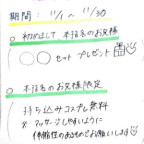 期間：11/1〜11/30
○ 初めまして本指名のお客様
○○セットプレゼント
○ 本指名のお客様限定
持ち込みコスプレ無料
※マッサージしやすいように
伸縮性のあるものでお願いします